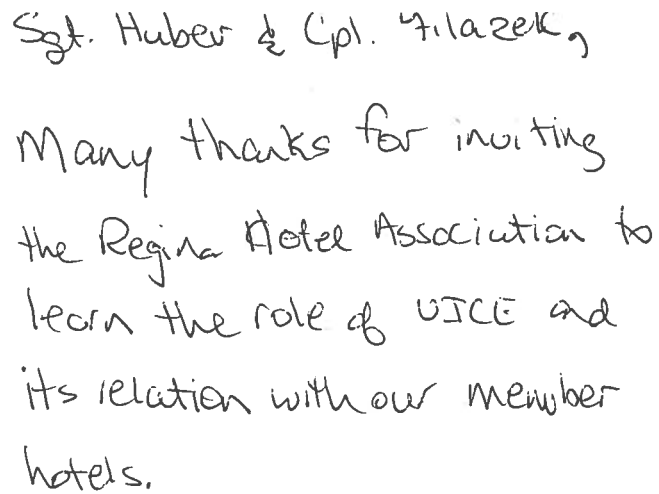 Sgt. Huber & Cpl. Filazek,
Many thanks for inviting
the Regina Hotel Association to
learn the role of VICE and
its relation with our member
hotels.